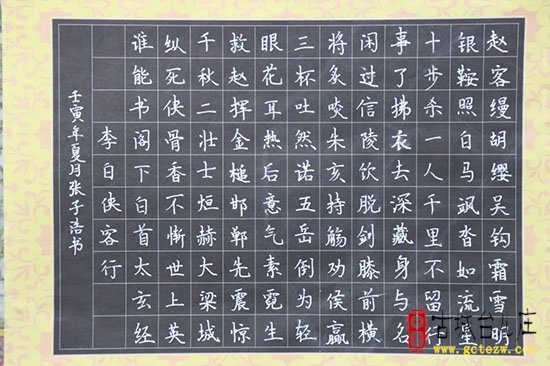 赵客缦胡缨吴钩霜雪明
银鞍照白马飒沓如流星
十步杀一人千里不留行
事了拂衣去深藏身与名
闲过信陵饮脱剑膝前横
将炙啖朱亥持觞劝侯嬴
三杯吐然诺五岳倒为轻
眼花耳热后意气素霓生
救赵挥金槌邯郸先震惊
千秋二壮士烜赫大梁城
纵死侠骨香不惭世上英
谁能书阁下白首太玄经
李白侠客行
壬寅年夏月张子浩书
古城台儿庄
www.gctezw.com